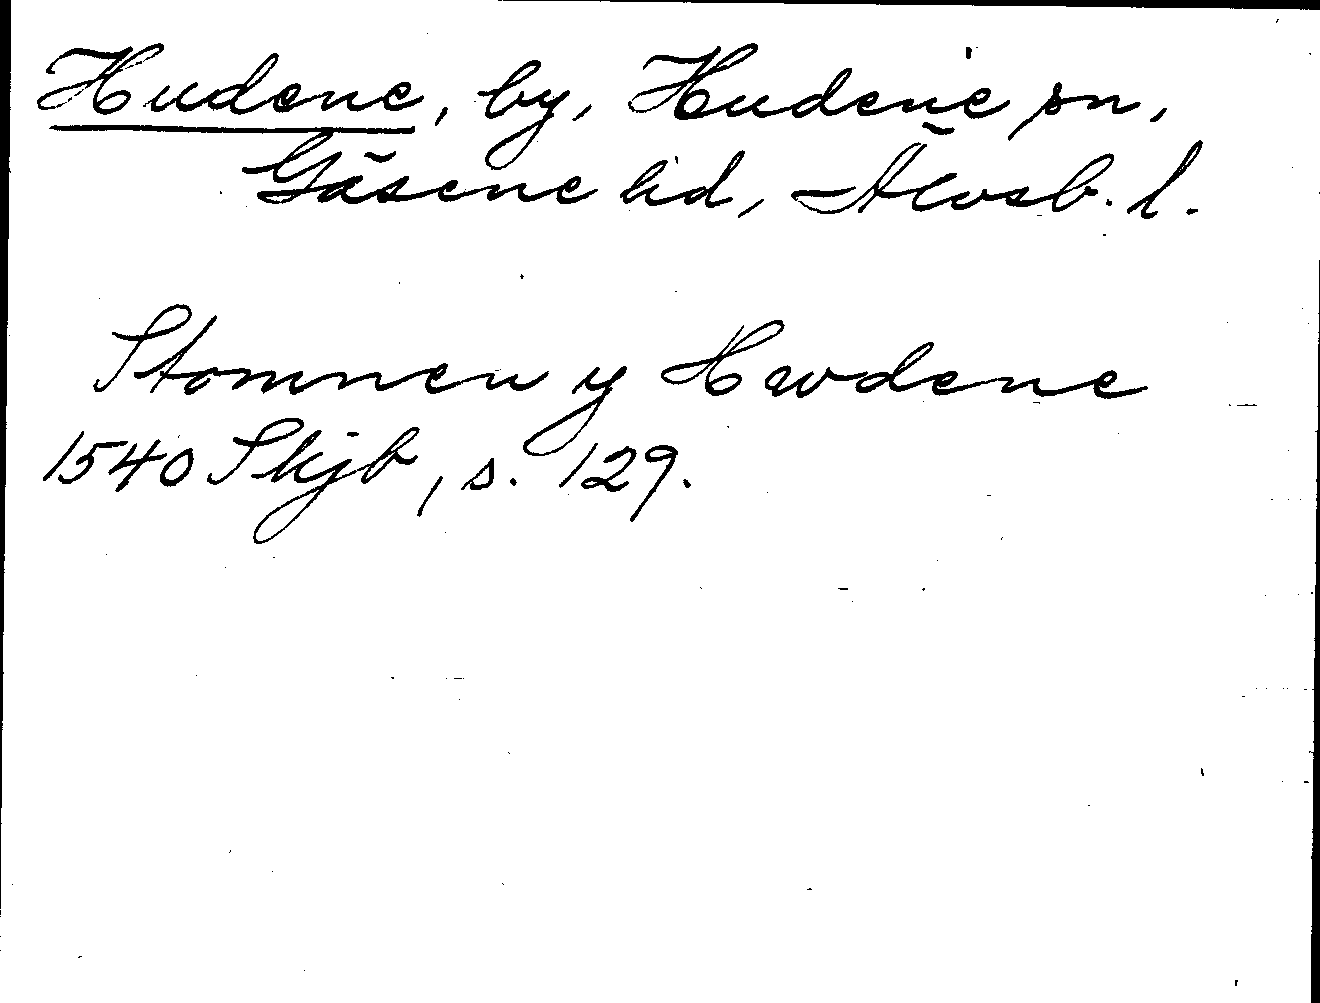 Hudene, by, Hudene sn,
Gäsene hd, Älvsb. l.
Stomnen y Hwdene
1540 Skjb, s. 129.